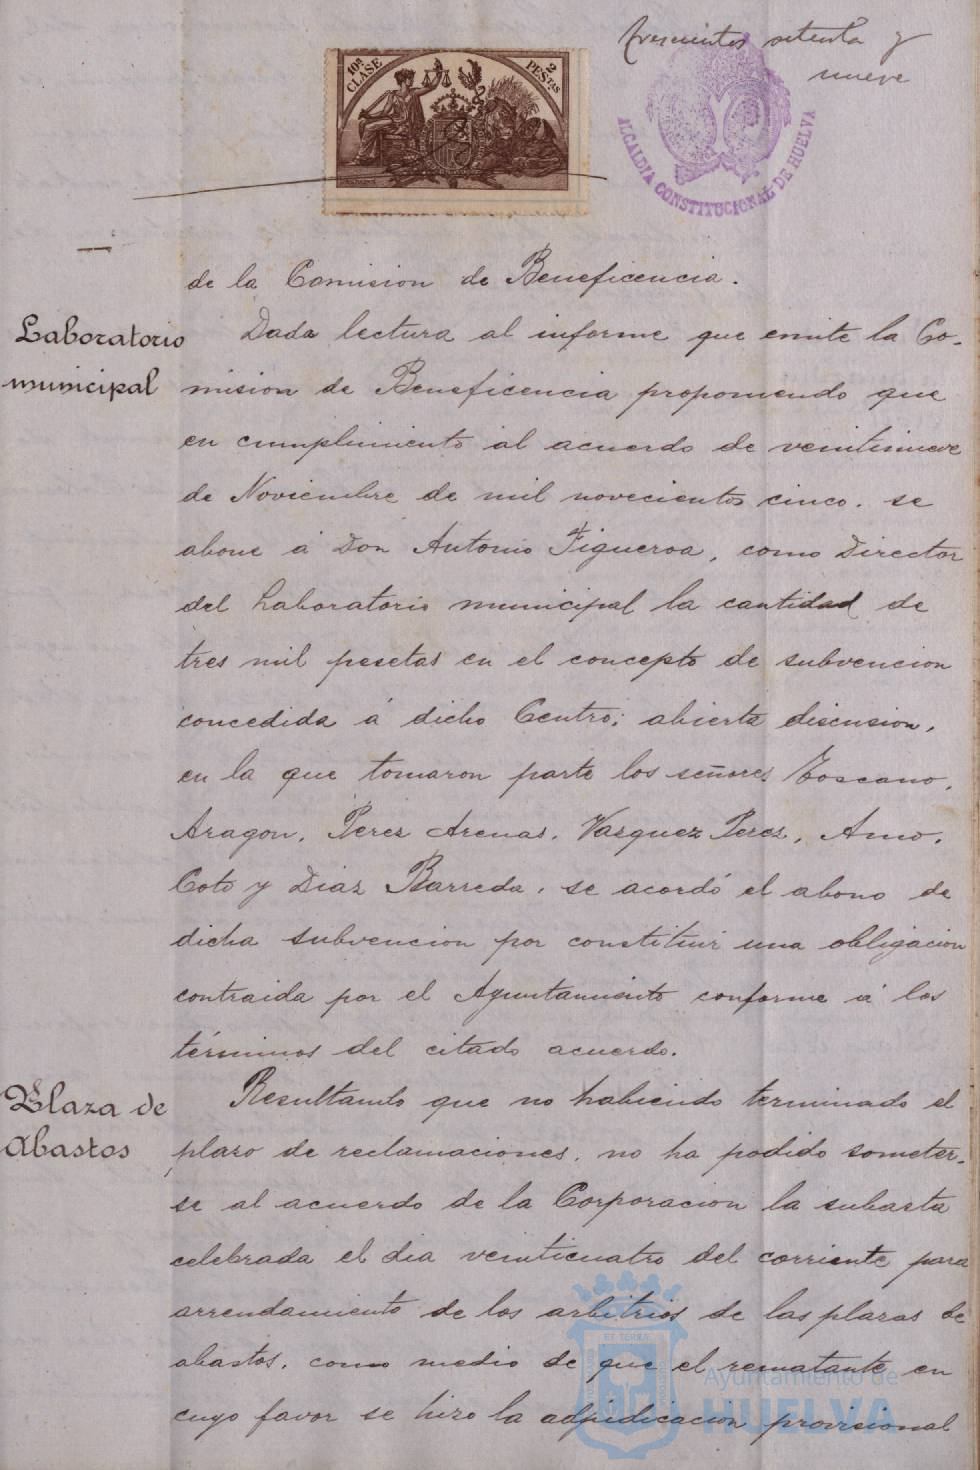 Trescientos setenta y
nueve
10ª CLASE
2 PESTAS
ALCALDIA CONSTITUCIONAL DE HUELVA
de la Comision de Beneficencia.
Laboratorio
municipal
Dada lectura al informe que emite la Co-
mision de Beneficencia proponiendo que
en cumplimiento al acuerdo de veintinueve
de Noviembre de mil novecientos cinco. se
abone á Don Antonio Figueroa, como Director
del Laboratorio municipal la cantidad de
tres mil pesetas en el concepto de subvencion
concedida á dicho Centro; abierta discusion,
en la que tomaron parte los señores Toscano,
Aragon, Perez Arenas, Vazquez Perez, Amo,
Coto y Diaz Barreda, se acordó el abono de
dicha subvencion por constituir una obligacion
contraida por el Ayuntamiento conforme á los
términos del citado acuerdo.
Plaza de
Abastos
Resultando que no habiendo terminado el
plazo de reclamaciones, no ha podido someter-
se al acuerdo de la Corporacion la subasta
celebrada el dia veinticuatro del corriente para
arrendamiento de los arbitrios de las plazas de
abastos, como medio de que el rematante en
cuyo favor se hizo la adjudicacion provisional
Ayuntamiento de
HUELVA